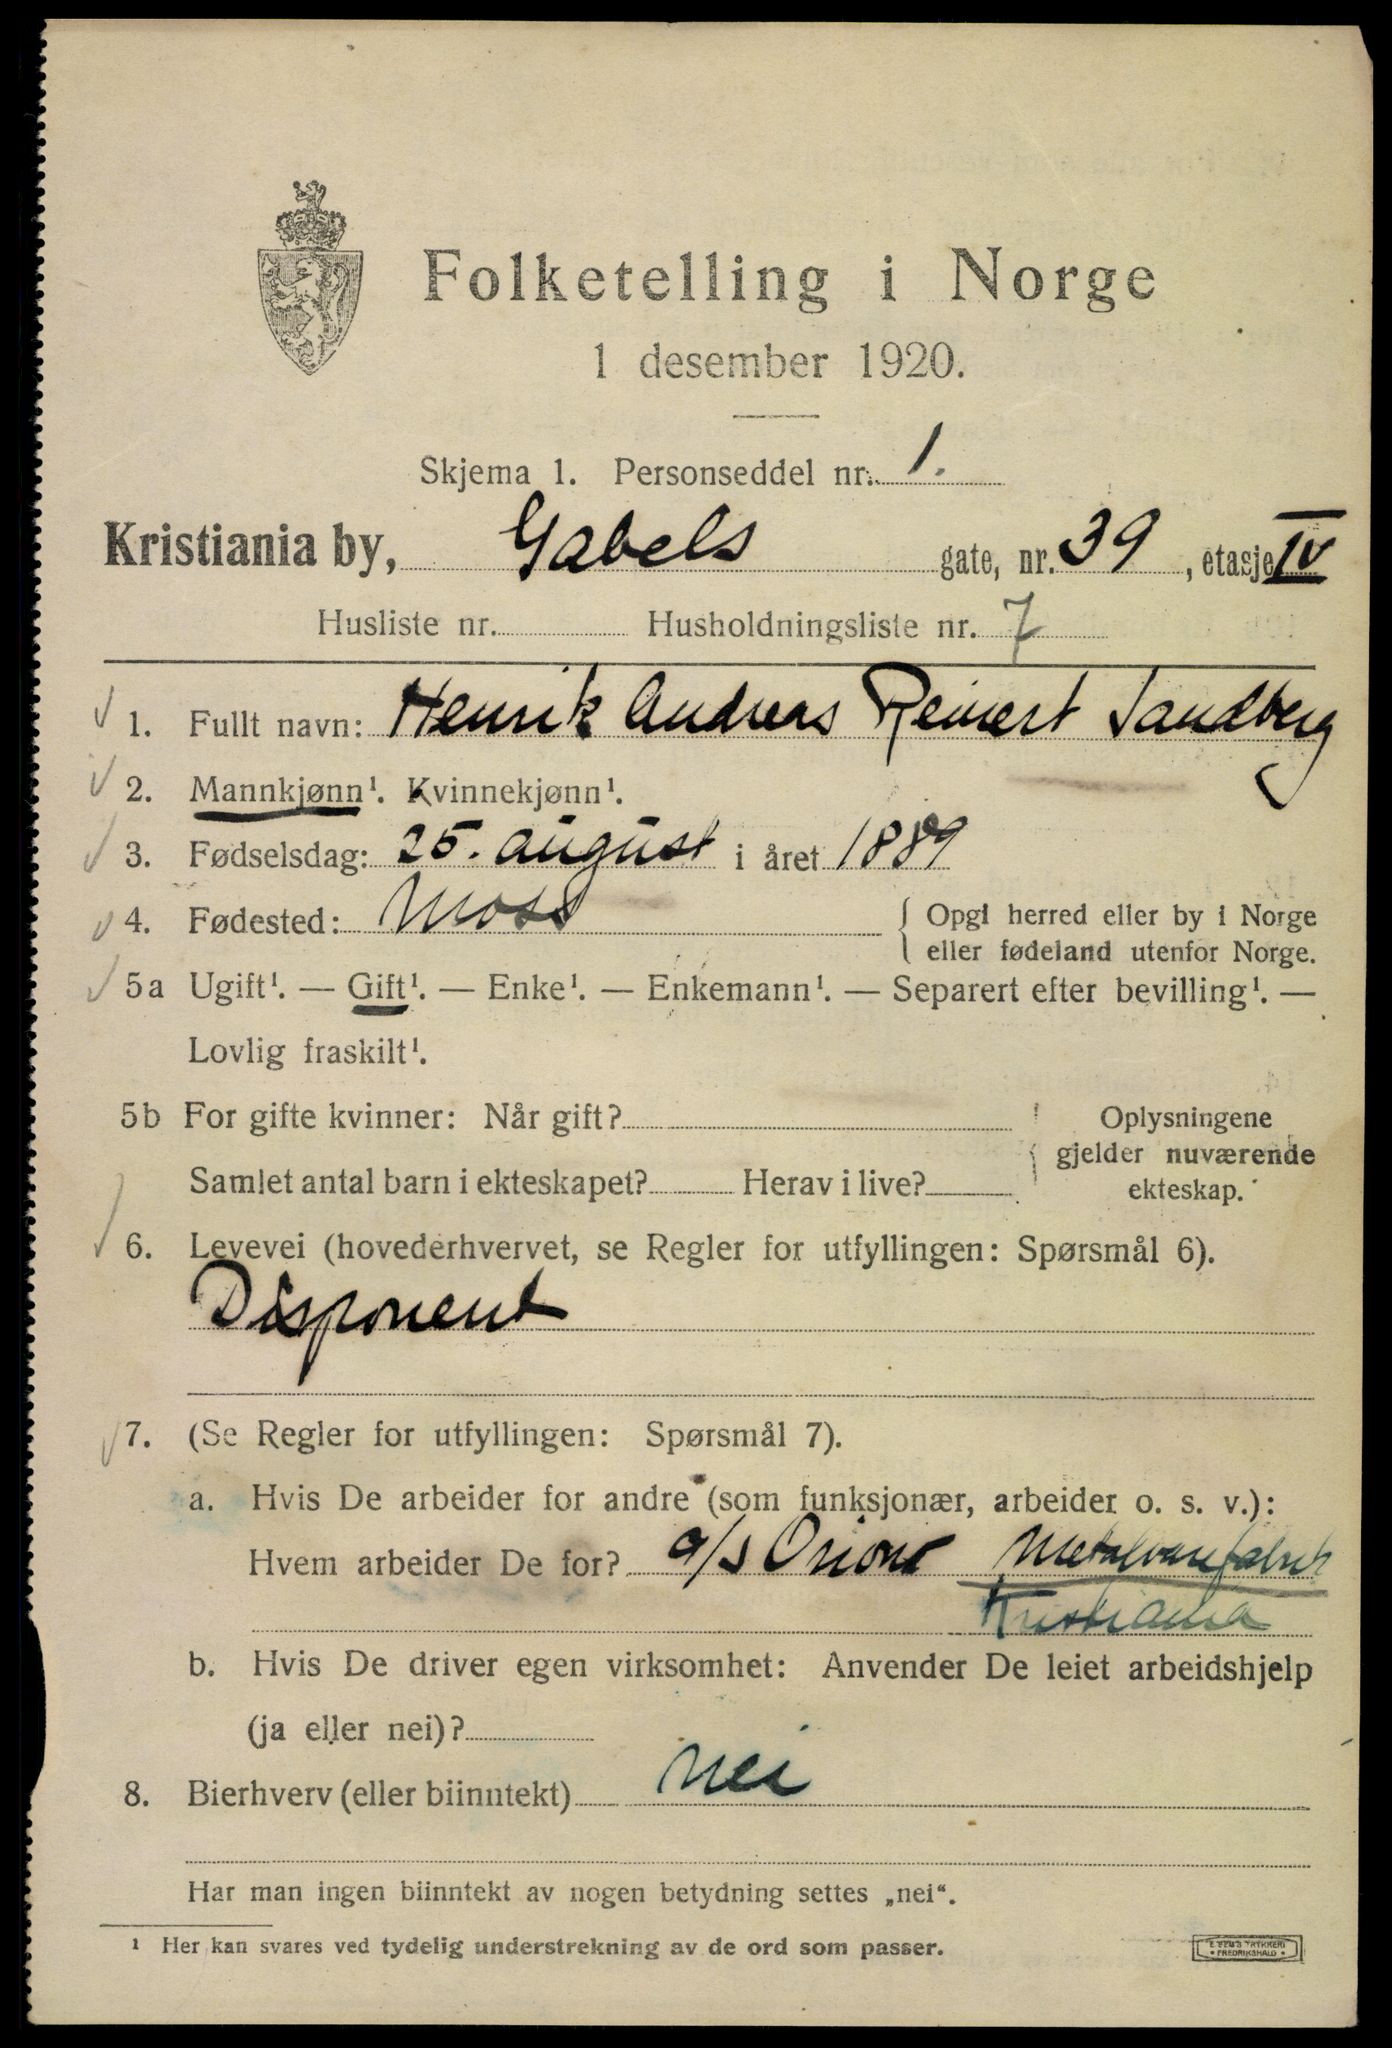 Folketelling i Norge
1 desember 1920.
Skjema 1. Personseddel nr. 1.
Kristiania by, Gabels gate, nr. 39, etasje IV
Husliste nr. Husholdningsliste nr. 7
1. Fullt navn: Henrik Andreas Reinert Sandberg
2. Mannkjønn¹. Kvinnekjønn¹.
3. Fødselsdag: 25. august i året 1889
4. Fødested: Moss { Opgi herred eller by i Norge
eller fødeland utenfor Norge.
5a Ugift¹. — Gift¹. — Enke¹. — Enkemann¹. — Separert efter bevilling¹. —
Lovlig fraskilt¹.
5b For gifte kvinner: Når gift? Oplysningene
gjelder nuværende
Samlet antal barn i ekteskapet? Herav i live? ekteskap.
6. Levevei (hovederhvervet, se Regler for utfyllingen: Spørsmål 6).
Disponent
7. (Se Regler for utfyllingen: Spørsmål 7).
a. Hvis De arbeider for andre (som funksjonær, arbeider o. s. v.):
Hvem arbeider De for? a/s Orion Metalvarefabrik
Kristiania
b. Hvis De driver egen virksomhet: Anvender De leiet arbeidshjelp
(ja eller nei)?
8. Bierhverv (eller biinntekt) nei
Har man ingen biinntekt av nogen betydning settes „nei“.
¹ Her kan svares ved tydelig understrekning av de ord som passer.
FREDRIKSHALD